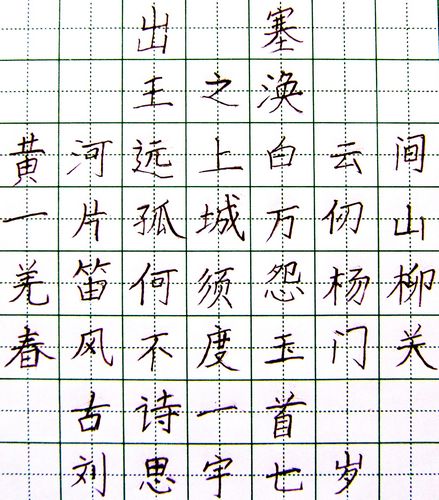 出塞
王之涣
黄河远上白云间
一片孤城万仞山
羌笛何须怨杨柳
春风不度玉门关
古诗一首
刘思宇七岁